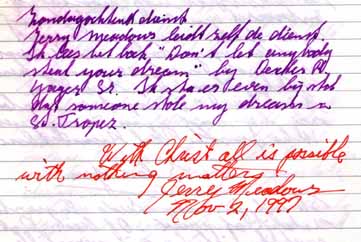 Zondagochtend dienst
Jerry Meadows leidt zelf de dienst.
Ik las het boek "Don't let anybody
steal your dream" by Dexter R.
Yager Sr. Ik sta er even bij stil
dat someone stole my dreams in
St. Tropez.
With Christ all is possible
with nothing matters
Jerry Meadows
Nov 2, 1997